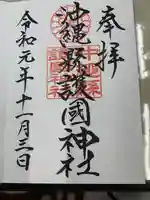 奉拝
沖縄縣護國神社
令和元年十一月三日